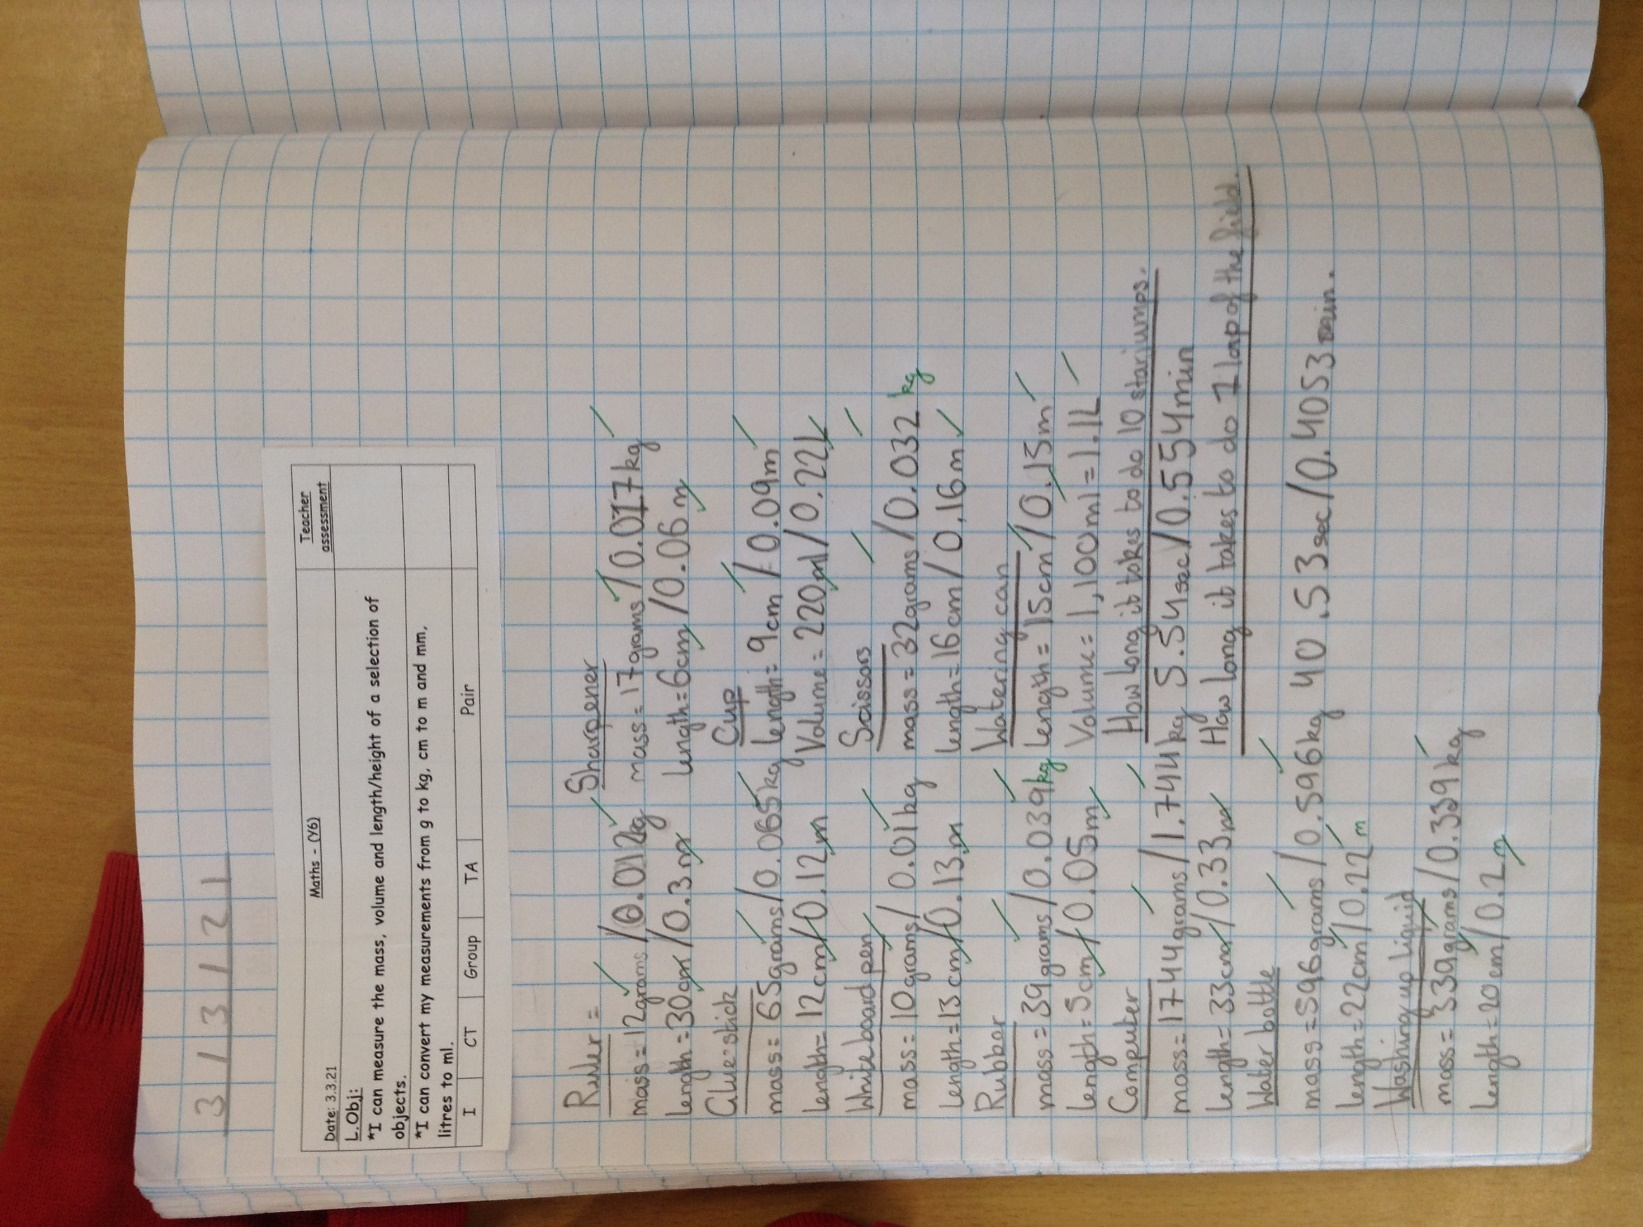 3/3/21
Date: 3.3.21 Maths - (Y6) Teacher assessment
L.Obj:
*I can measure the mass, volume and length/height of a selection of
objects.
*I can convert my measurements from g to kg, cm to m and mm,
litres to ml.
I CT Group TA Pair
Ruler =
mass = 12grams/0.012kg
length = 30cm/0.3m
Gluestick
mass = 65grams/0.065kg
length = 12cm/0.12m
Whiteboard pen
mass = 10grams/0.01kg
length = 13cm/0.13m
Rubbar
mass = 39grams/0.039kg
length = 5cm/0.05m
Computer
mass = 1744grams/1.744kg
length = 33cm/0.33m
Water bottle
mass = 596grams/0.596kg
length = 22cm/0.22m
Washing up liquid
mass = 339grams/0.339kg
length = 20cm/0.2m
Sharpener
mass = 17grams/0.017kg
length = 6cm/0.06m
Cup
length = 9cm/0.09m
Volume = 220ml/0.22L
Scissors
mass = 32grams/0.032kg
length = 16cm/0.16m
Watering can
length = 15cm/0.15m
Volume = 1,100ml = 1.1L
How long it takes to do 10 starjumps.
5.54sec/0.554min
How long it takes to do 1 lap of the field.
40.53sec/0.4053min.